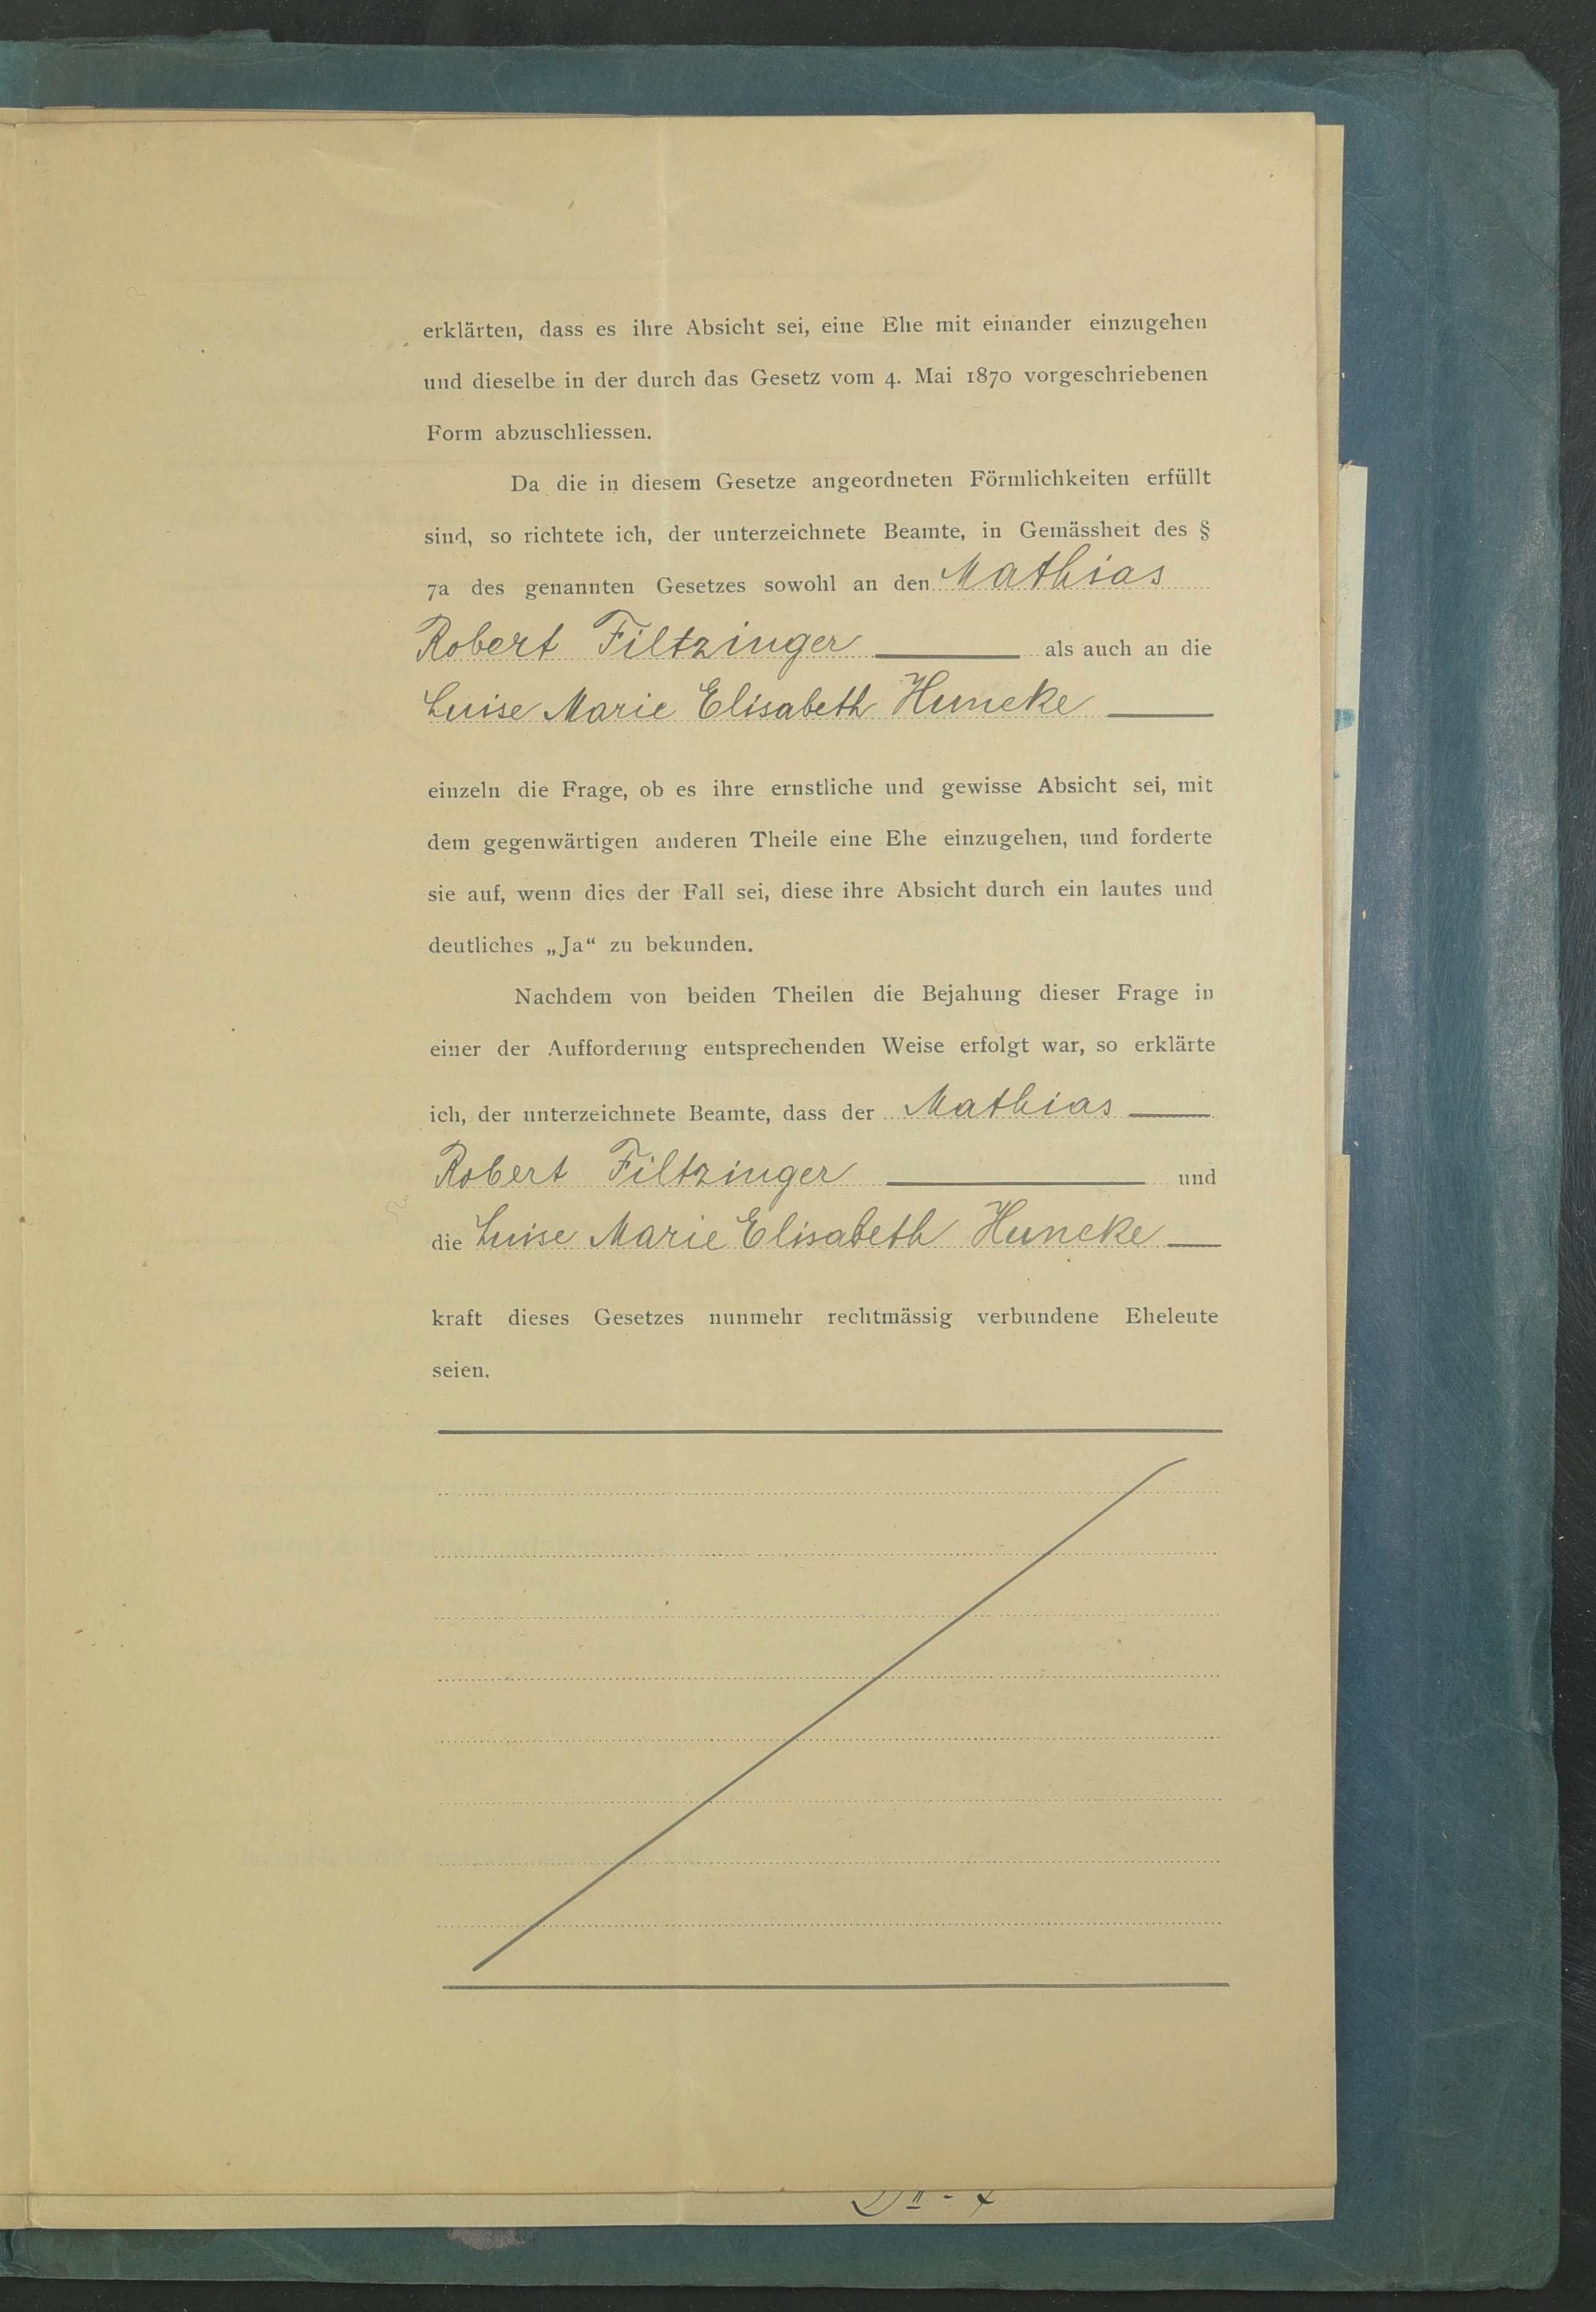 erklärten, dass es ihre Absicht sei, eine Ehe mit einander einzugehen
und dieselbe in der durch das Gesetz vom 4. Mai 1870 vorgeschriebenen
Form abzuschliessen.
Da die in diesem Gesetze angeordneten Förmlichkeiten erfüllt
sind, so richtete ich, der unterzeichnete Beamte, in Gemässheit des §
7a des genannten Gesetzes sowohl an den Mathias
Robert Filtzinger als auch an die
Luise Marie Elisabeth Huncke
einzeln die Frage, ob es ihre ernstliche und gewisse Absicht sei, mit
dem gegenwärtigen anderen Theile eine Ehe einzugehen, und forderte
sie auf, wenn dies der Fall sei, diese ihre Absicht durch ein lautes und
deutliches „Ja“ zu bekunden.
Nachdem von beiden Theilen die Bejahung dieser Frage in
einer der Aufforderung entsprechenden Weise erfolgt war, so erklärte
ich, der unterzeichnete Beamte, dass der Mathias
Robert Filtzinger und
die Luise Marie Elisabeth Huncke
kraft dieses Gesetzes nunmehr rechtmässig verbundene Eheleute
seien.